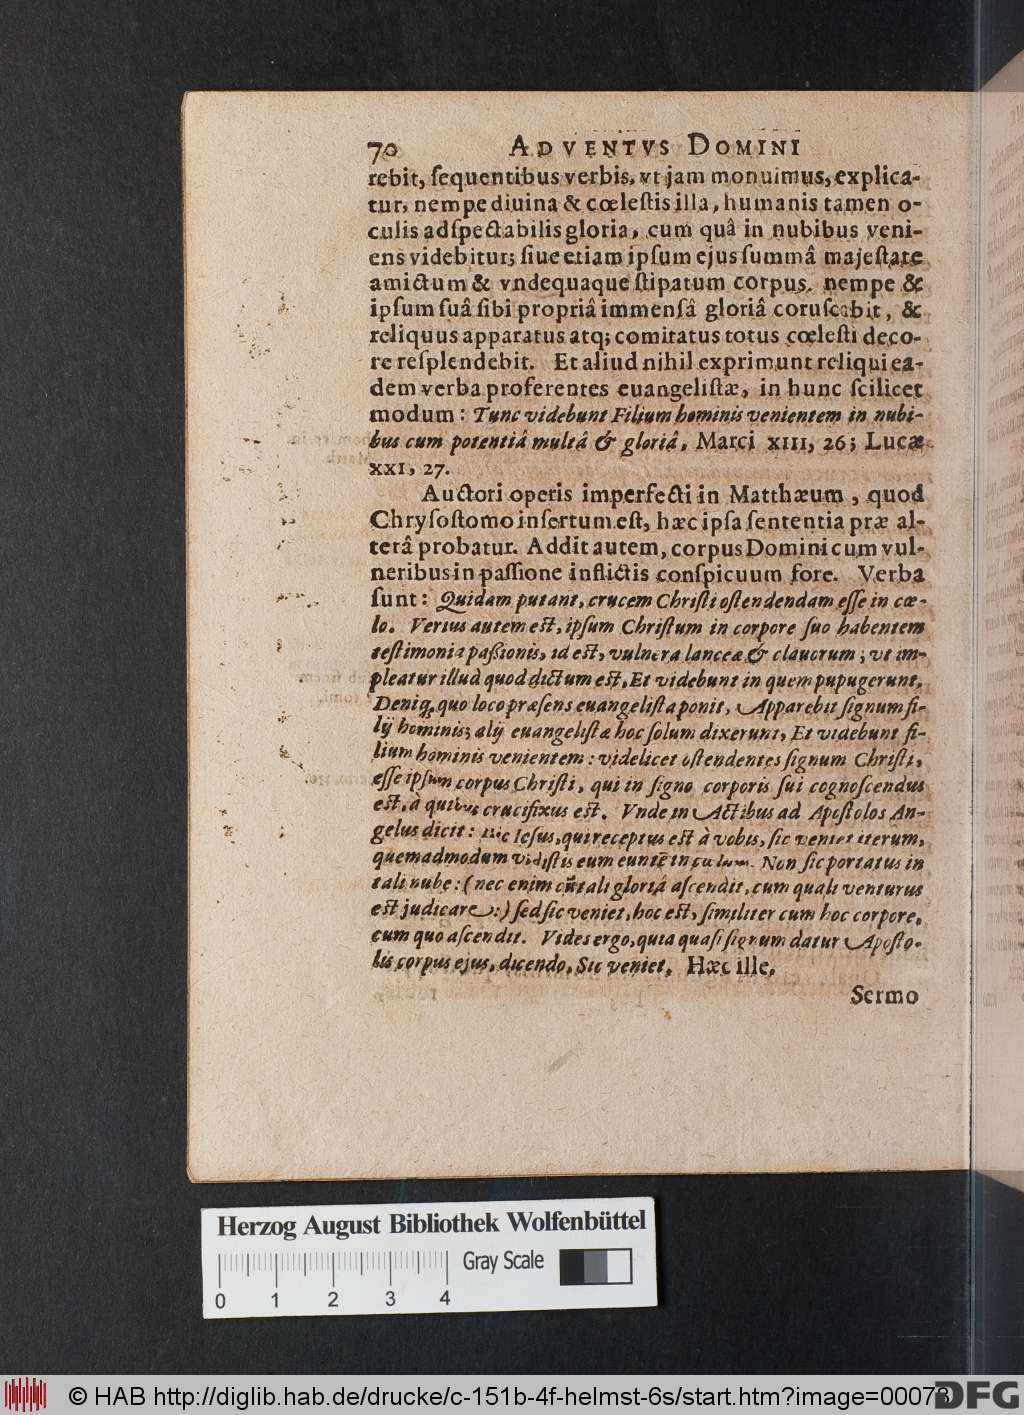 70 ADVENTVS DOMINI
rebit, ſequentibus verbis, vt jam monuimus, explica-
tur, nempe diuina & cœleſtis illa, humanis tamen o-
culis adſpectabilis gloria, cum quâ in nubibus veni-
ens videbitur; ſiue etiam ipſum ejus ſummâ majeſtate
amictum & vndequaque ſtipatum corpus, nempe &
ipſum ſuâ ſibi propriâ immenſâ gloriâ coruſcabit, &
reliquus apparatus atq; comitatus totus cœleſti deco-
re reſplendebit. Et aliud nihil exprimunt reliqui ea-
dem verba proferentes euangeliſtæ, in hunc ſcilicet
modum: Tunc videbunt Filium hominis venientem in nubi-
bus cum potentiâ multâ & gloriâ, Marci XIII, 26; Lucæ
XXI, 27.
Auctori operis imperfecti in Matthæum, quod
Chryſoſtomo inſertum eſt, hæc ipſa ſententia præ al-
terâ probatur. Addit autem, corpus Domini cum vul-
neribus in paſſione inflictis conſpicuum fore. Verba
ſunt: Quidam putant, crucem Chriſti oſtendendam eſſe in cœ-
lo. Verius autem eſt, ipſum Chriſtum in corpore ſuo habentem
teſtimonia paßionis, id eſt, vulnera lanceæ & clauorum; vt im-
pleatur illud quod dictum eſt, Et videbunt in quem pupugerunt.
Deniq; quo loco præſens euangeliſta ponit, Apparebit ſignum fi-
lij hominis; alij euangeliſtæ hoc ſolum dixerunt, Et videbunt fi-
lium hominis venientem: videlicet oſtendentes ſignum Chriſti,
eſſe ipſum corpus Chriſti, qui in ſigno corporis ſui cognoſcendus
eſt, à quibus crucifixus eſt. Vnde in Actibus ad Apoſtolos An-
gelus dicit: Hic Jeſus, qui receptus eſt à vobis, ſic veniet iterum,
quemadmodum vidiſtis eum euntē in cælum. Non ſic portatus in
tali nube: (nec enim cū tali gloriâ aſcendit, cum quali venturus
eſt judicare:) ſed ſic veniet, hoc eſt, ſimiliter cum hoc corpore,
cum quo aſcendit. Vides ergo, quia quaſi ſignum datur Apoſto-
lis corpus ejus, dicendo, Sic veniet. Hæc ille.
Sermo
Herzog August Bibliothek Wolfenbüttel
Gray Scale
0 1 2 3 4
© HAB http://diglib.hab.de/drucke/c-151b-4f-helmst-6s/start.htm?image=00078
DFG